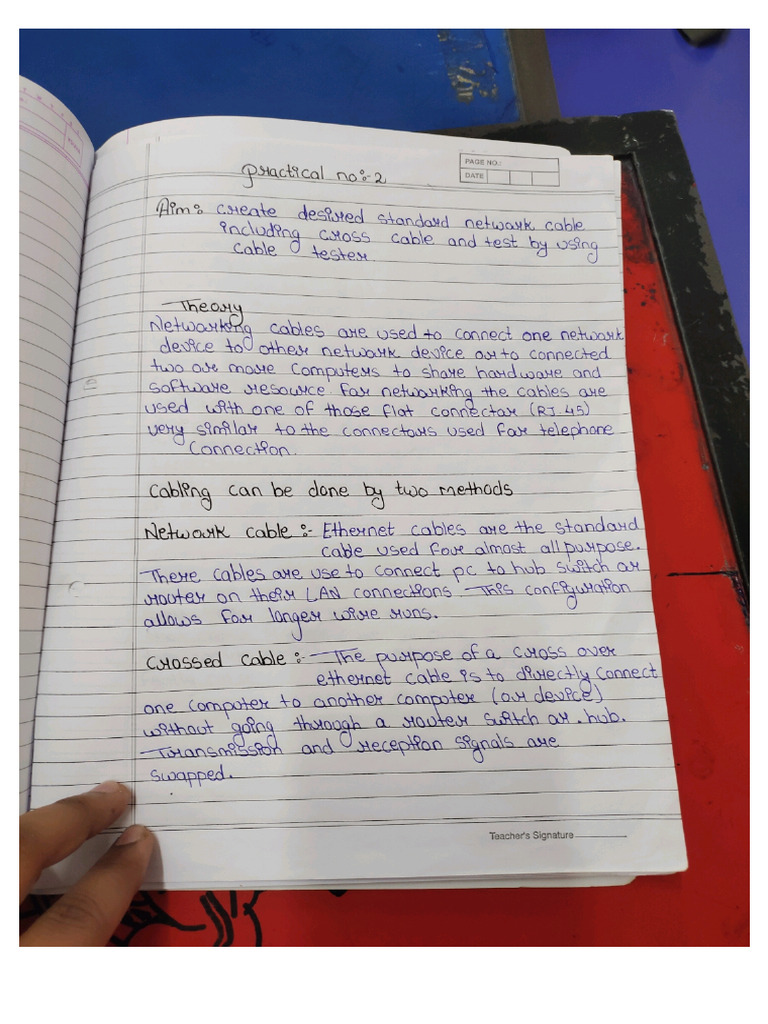 PAGE NO.:
DATE
Practical no:- 2
Aim:- create desired standard network cable
including cross cable and test by using
cable tester
Theory
Networking cables are used to connect one network
device to other network device or to connected
two or more computers to share hardware and
software resource. For networking the cables are
used with one of those flat connector (RJ 45)
very similar to the connectors used for telephone
Connection.
Cabling can be done by two methods
Network cable :- Ethernet cables are the standard
cable used for almost all purpose.
There cables are use to connect pc to hub switch or
router on their LAN connections This configuration
allows for longer wire runs.
Crossed cable :- The purpose of a cross over
ethernet cable is to directly connect
one computer to another computer (or device)
without going through a router switch or. hub.
Transmission and reception signals are
swapped.
Teacher's Signature